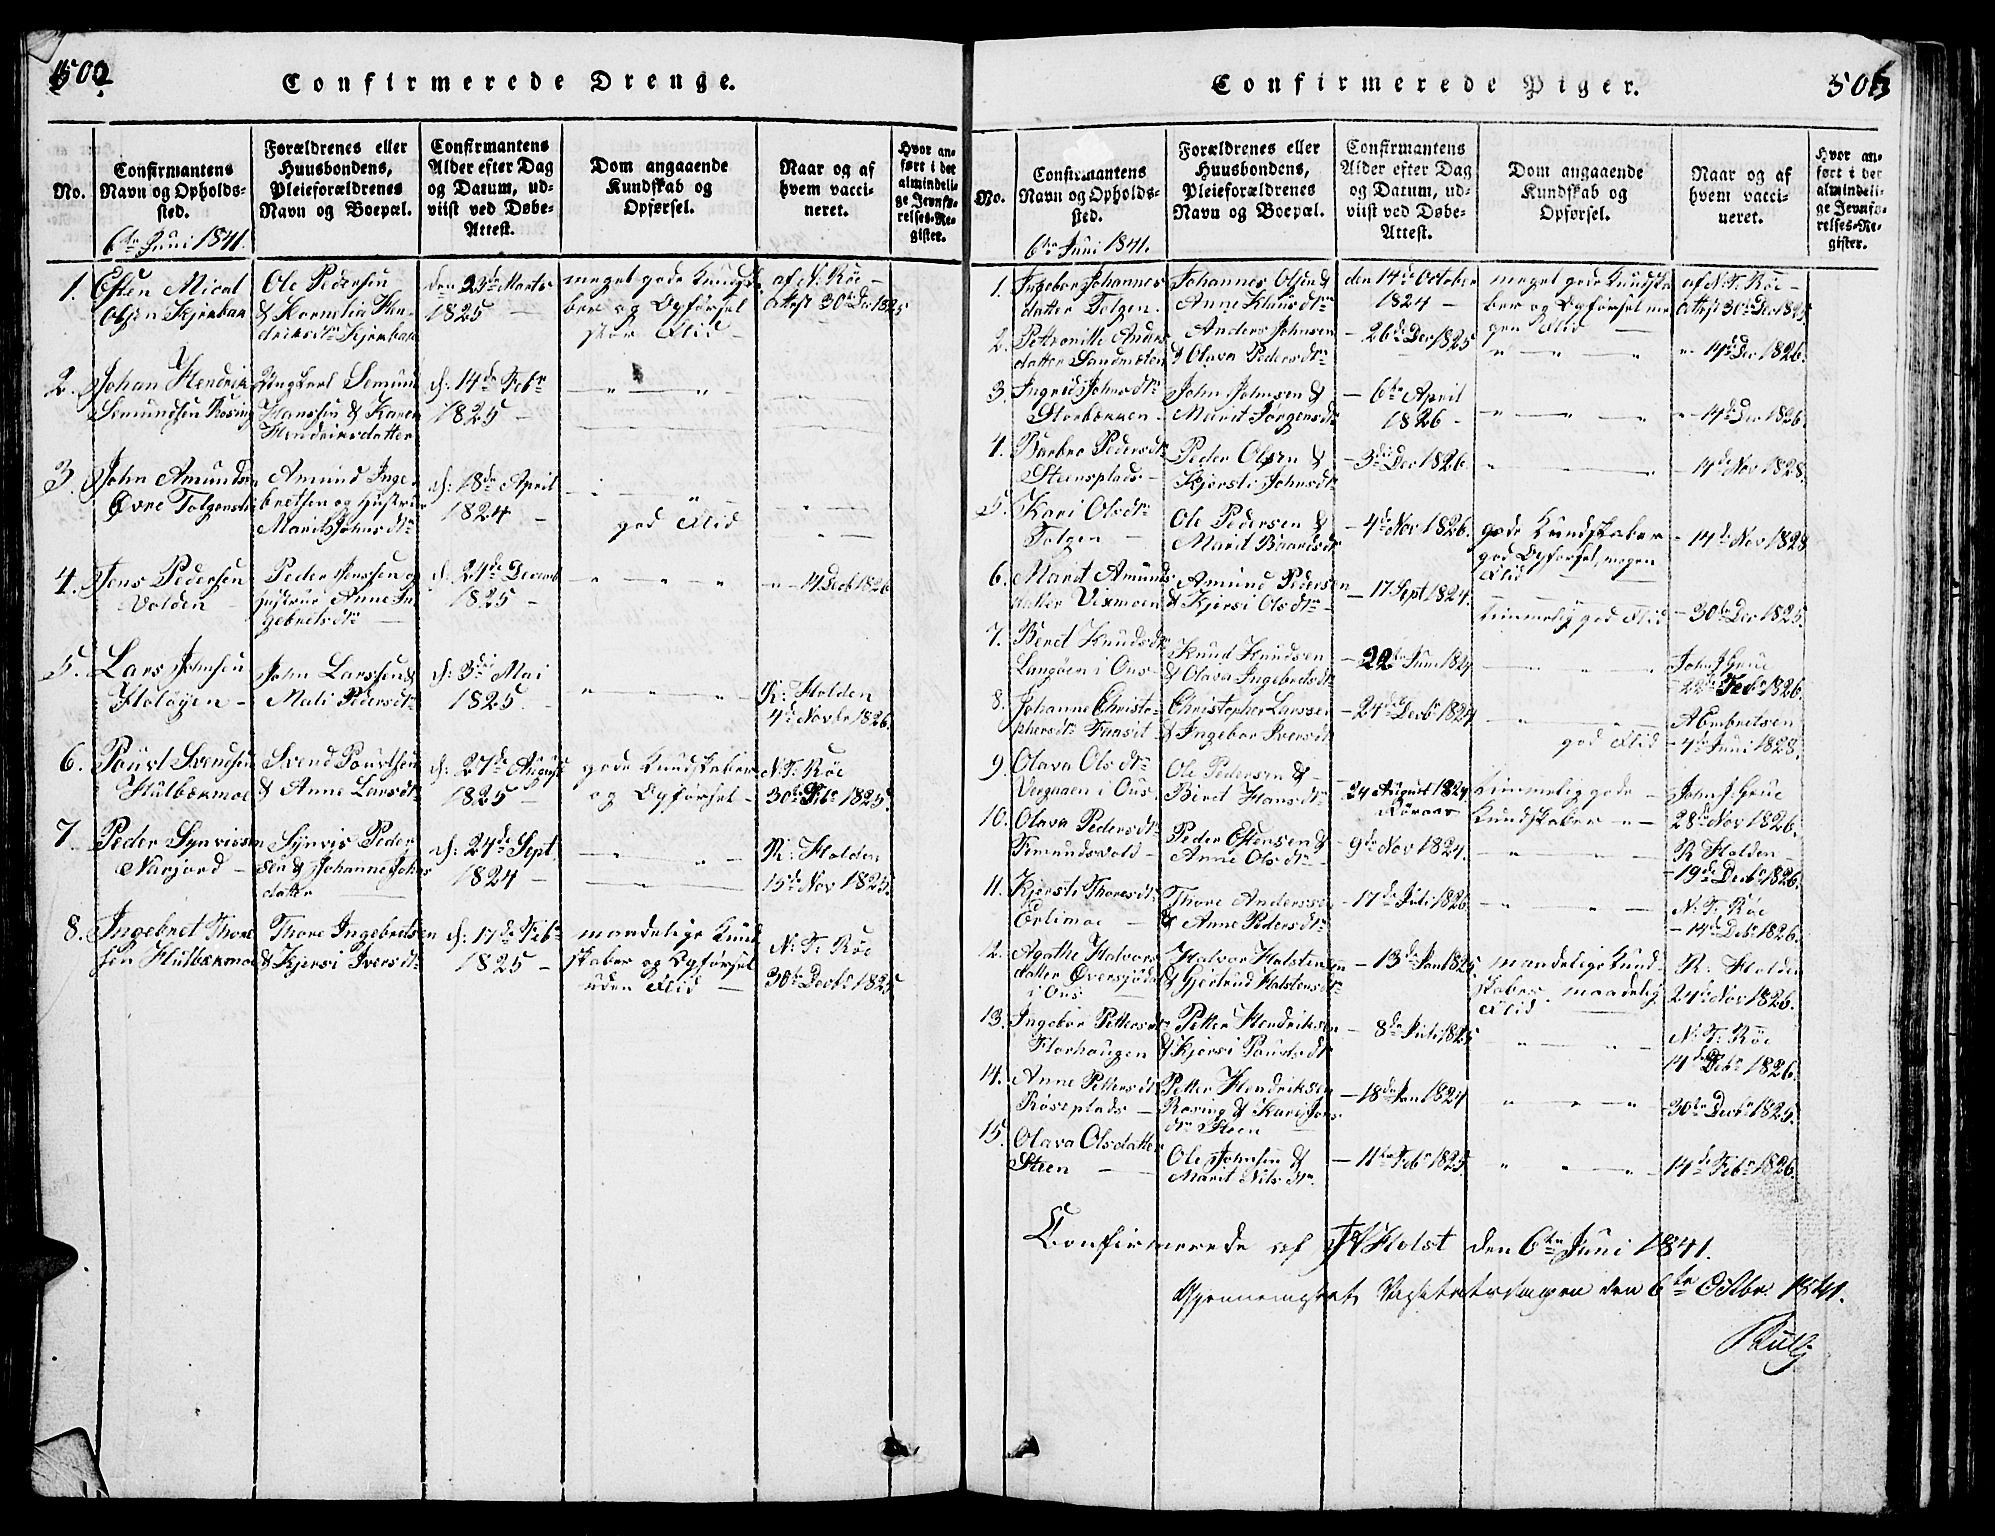 502
Confirmerede Drenge.
No.
Confirmantens
Navn og Opholds-
sted.
Forældrenes eller
Huusbondens,
Pleieforældrenes
Navn og Boepæl.
Confirmantens
Alder efter Dag
og Datum, ud-
viist ved Døbe-
Attest.
Dom angaaende
Kundskab og
Opførsel.
Naar og af
hvem vacci-
neret.
Hvor an-
ført i det
almindeli-
ge Jevnfø-
relses-Re-
gister.
6te Juni 1841.
1. Esten Olsen Kjønbak
Ole Pedersen
& Kornelia Hen-
driksdtr
den 23de Marts
1825 -
meget gode Kundska-
ber og Opførsel
stor Flid
af N. T. Røe -
Attest 30te Dec 1825
2. Johan Hendrik
Semundsen Rosing
Ungkarl Semund
Hanssen & Karen
Hendriksdatter
d: 14de Febr
1825 -
3. John Amundsen
Øvre Tolgensli
Amund Inge-
bretsen og Hustrue
Marit Johnsdtr
d: 18de April
1824 -
god Flid
4. Jons Pedersen
Volden -
Peder Jonssen og
Hustrue Anne In-
gebretsdtr
d: 24de Decemb
1825 -
" - 14 Decb 1826
5. Lars Johnsen
Holøyen -
John Larssen &
Mali Pedersdtr
d: 3die Mai
1825. -
R: Holden
4de Novbr 1826
6. Pouvl Svendsen
Hulbækmoe
Svend Pouvlsen
& Anne Larsdtr
d: 27de August
1825 -
gode Kundskaber
og Opførsel -
N. T. Røe
30te 1825.
7. Peder Synvissen
Narjord -
Synvis Peder-
sen & Johanne Johns-
datter
d: 24de Sept.
1824 -
R: Holden
15de Nov 1825.
8. Ingebret Thore-
sen Hulbækmoe
Thore Ingebretsen
& Kjersi Iversdtr
d: 17de Feb
1825 -
maadelige Kund-
skaber og Opførsel
uden Flid -
N: T. Røe
30te Decbr 1825
Confirmerede Piger.
503
No.
Confirmantens
Navn og Opholds-
sted.
Forældrenes eller
Huusbondens,
Pleieforældrenes
Navn og Boepæl.
Confirmantens
Alder efter Dag
og Datum, ud-
viist ved Døbe-
Attest.
Dom angaaende
Kundskab og
Opførsel.
Naar og af
hvem vacci-
neret.
Hvor an-
ført i det
almindeli-
ge Jevnfø-
relses-Re-
gister.
6te Juni 1841.
1. Ingebor Johannes-
datter Tolgen.
Johannes Olsen &
Anne Klausdtr
den 14de October
1824 -
meget gode Kundska-
ber og Opførsel me-
gen Flid
af N. T. Røe -
Attest 30te Dec 1825.
2. Petronille Anders-
datter
Anders Johnsen
& Olava Pedersdtr
- 26de Dec 1825
" 14de Dec 1826.
3. Ingrid Johnsdtr
Storbækken -
John Johnsen &
Marit Jørgensdtr
- 6te April
1826 -
" 14de Dec 1826.
4. Barbro Pedersdtr
Steensplads -
Peder Olsen &
Kjersti Johnsdtr
- 3die Dec 1826.
- 14de Nov 1828.
5. Kari Olsdtr
Tolgen -
Ole Pedersen &
Marit Baardsdtr
- 4de Nov 1826.
gode Kundskaber
god Opførsel, megen
Flid
- 14de Nov 1828
6. Marit Amunds-
datter Vixmoen
Amund Pedersen
& Kjersi Olsdtr -
- 17 Sept 1824.
temmelig god Flid
- 30te Dec 1825.
7. Beret Knudsdtr
Langøen i Ous -
Knud Knudsen
& Olava Ingebretsdtr
- 22de Juni 1824
John J. Grue
- 22de Feb 1826.
8. Johanne Christo-
phersdtr
Christopher Larssen
& Ingebor Iversdtr
- 24de Decbr 1824
god Flid
A Embretsen
- 4de Juni 1828.
9. Olava Olsdtr
Vingaaen i Ous.
Ole Pedersen & -
Beret Hansdtr
- 24 August 1824
Röraas
temmelig gode -
Kundskaber " -
John J. Grue
28de Nov 1826.
10. Olava Pedersdtr
Femundsvold -
Peder Estensen &
Anne Olsdtr
- 9de Nov 1824.
R Holden -
- 19de Decbr 1826.
11. Kjersti Thoresdtr
Erlimoe -
Thore Anderssen
& Anne Pedersdtr
- 17de Juli 1826
N: T. Røe
- 14de Decbr 1826.
12. Agathe Halvors-
datter Øversjødal
i Ous
Halvor Halstensen
& Gjertrud Halstensdtr
- 13de Jan 1825
maadelige Kund-
skaber. maadelig
Flid
R: Holden
24de Nov 1826.
13. Ingebor Pettersdtr
Florhaugen
Petter Hendriksen
& Kjersi Poulsdtr
- 8de Juli 1825
N: T. Røe
14de Decbr 1826.
14. Anne Pettersdtr
Röseplads -
Petter Hendriksen
Rosing & Kari Jons-
dtr Steen
- 18de Jan 1824
- 30te Decbr 1825.
15. Olava Olsdatter
Steen -
Ole Johnsen &
Marit Nilsdtr.
- 11te Febr 1825
14de Febr 1826.
Confirmerede af Holst den 6te Juni 1841.
Visitatsdagen den 6te Octbr. 1841.